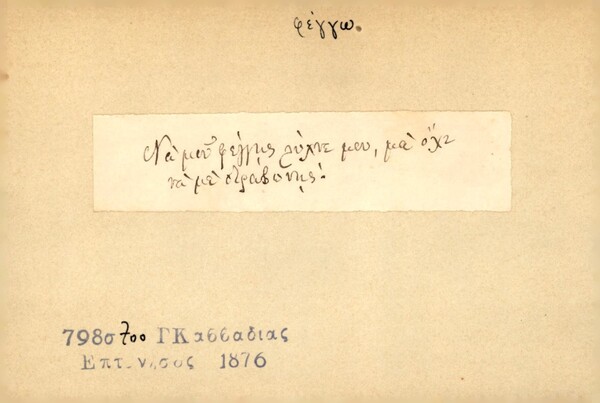 φέγγω.
Νὰ μοῦ φέγγῃς λύχνε μου, μὰ ὄχι
νὰ μὲ στραβώνῃς!
798σ700 ΓΚασσαδιας
Επτ.νησος 1876